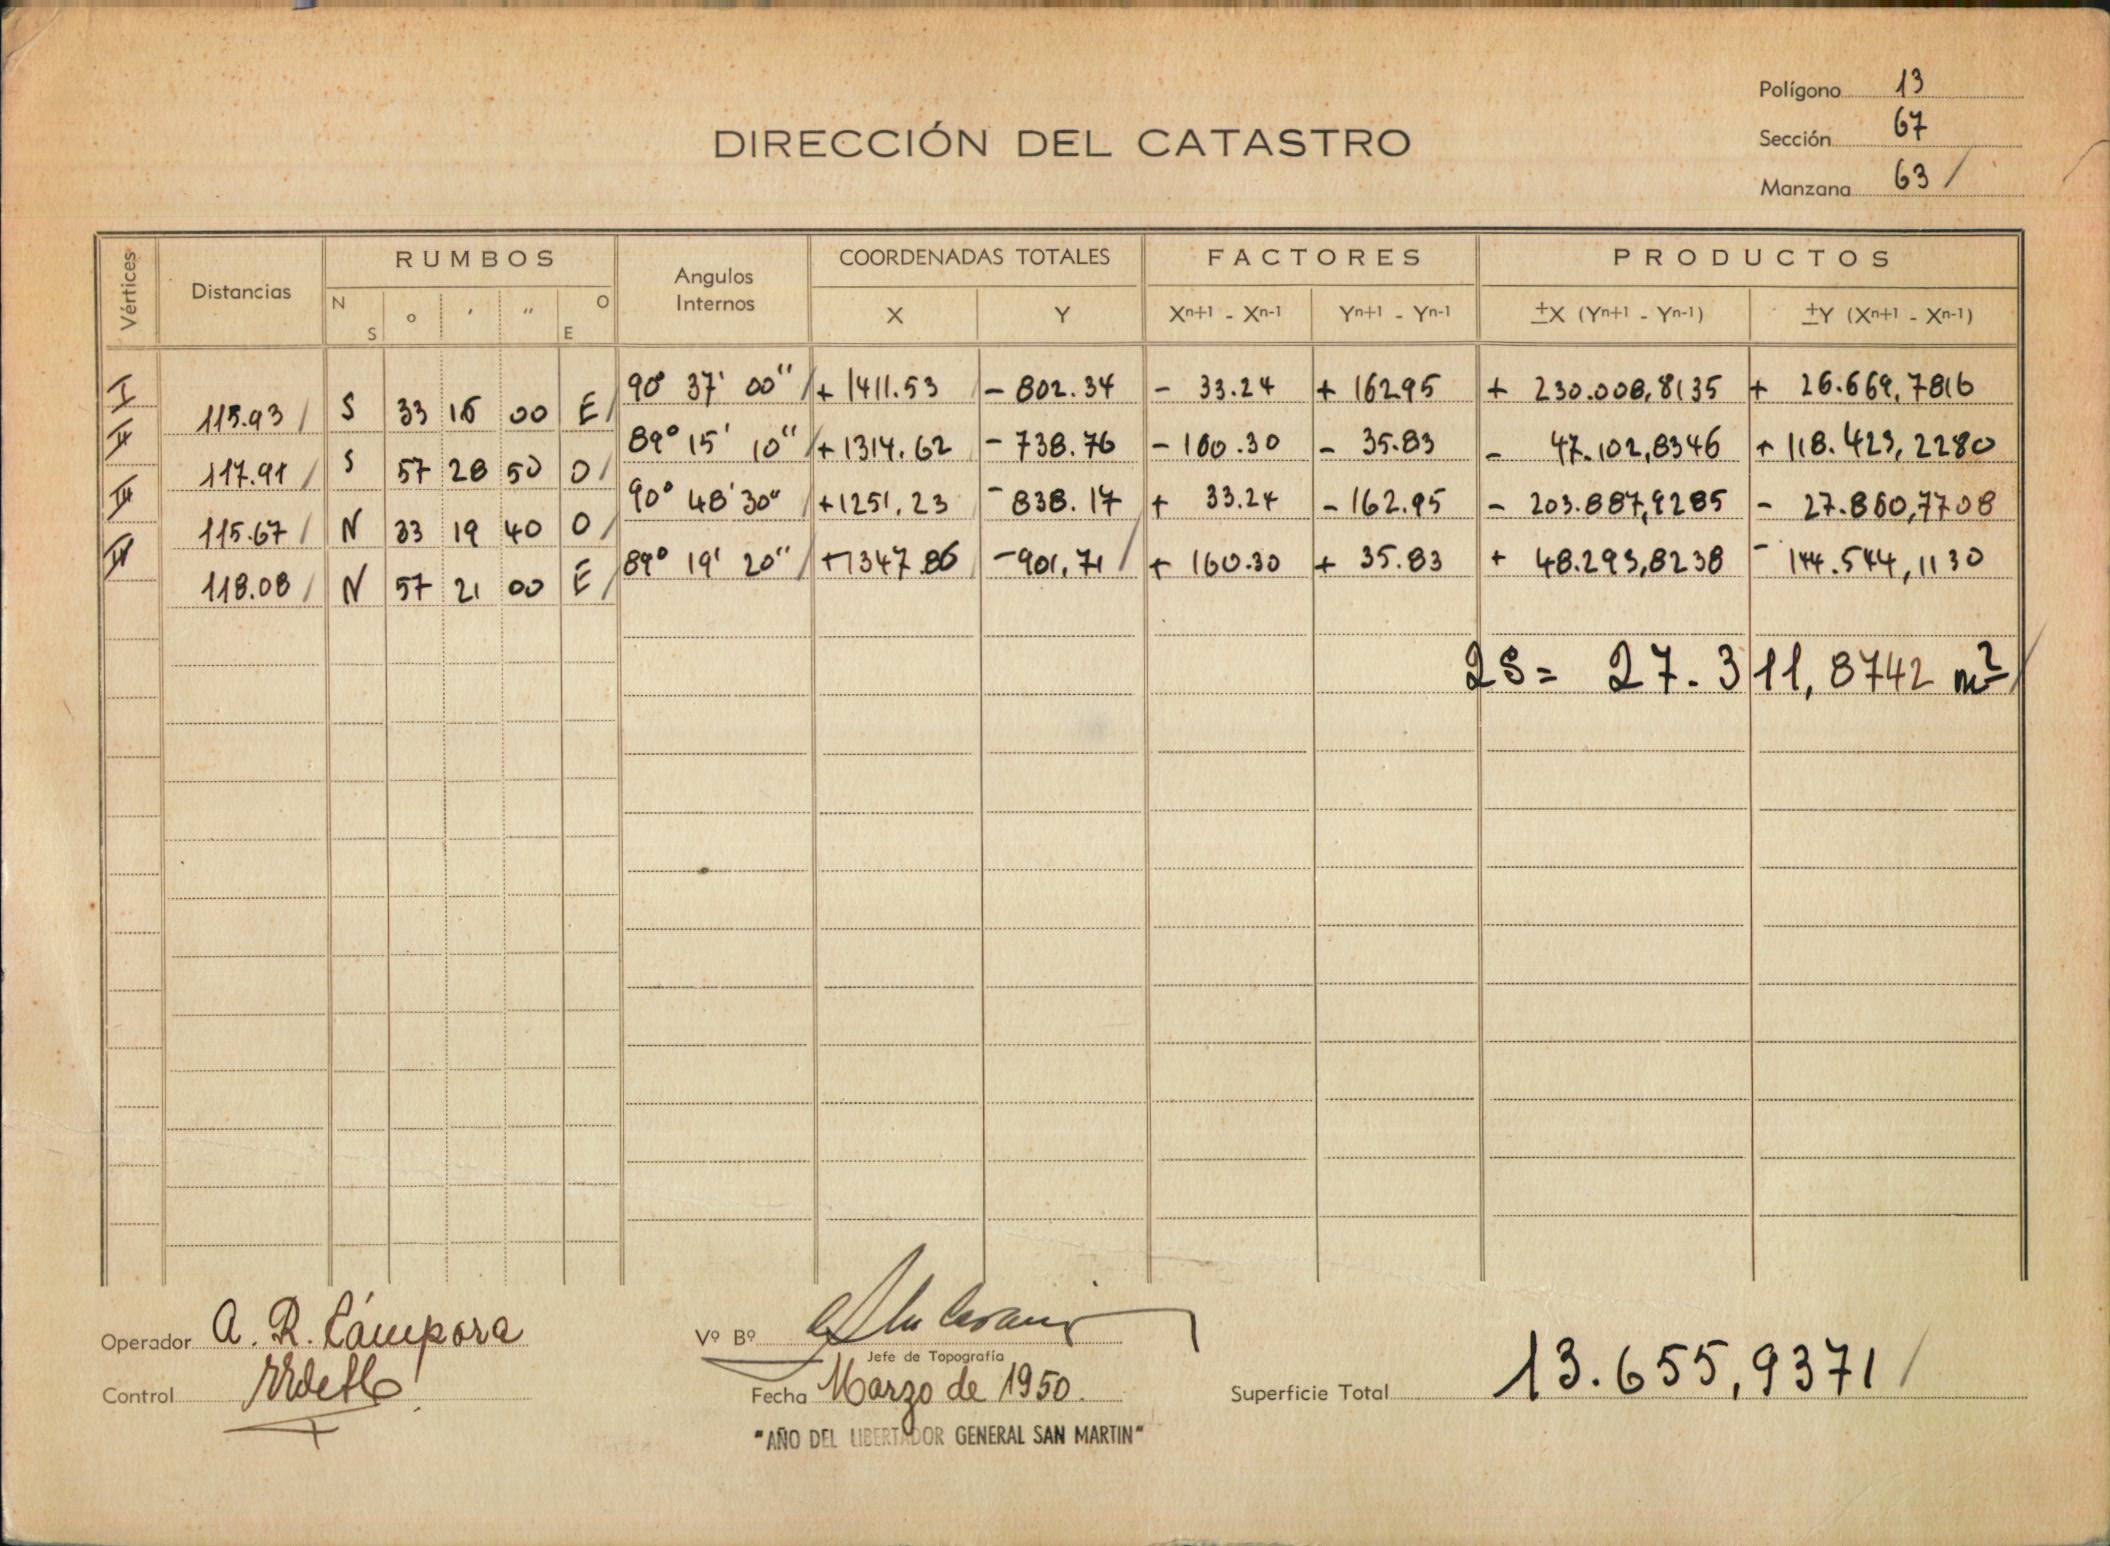 Polígono 13
DIRECCIÓN DEL CATASTRO
Sección 67
Manzana 63 /
Vértices Distancias RUMBOS Angulos Internos COORDENADAS TOTALES FACTORES PRODUCTOS
N S ° ' " O E X Y Xn+1 - Xn-1 Yn+1 - Yn-1 ±X (Yn+1 - Yn-1) ±Y (Xn+1 - Xn-1)
I 90° 37' 00" / + 1411.53 - 802.34 - 33.24 + 162.95 + 230.008,8135 + 26.669,7816
115.93 / S 33 16 00 E /
II 89° 15' 10" / + 1314.62 - 738.76 - 160.30 - 35.83 - 47.102,8346 + 118.423,2280
117.91 / S 57 28 50 O /
III 90° 48' 30" / + 1251.23 - 838.17 + 33.24 - 162.95 - 203.887,9285 - 27.860,7708
115.67 / N 33 19 40 O /
IV 89° 19' 20" / + 1347.86 - 901.71 / + 160.30 + 35.83 + 48.293,8238 - 144.544,1130
118.08 / N 57 21 00 E /
2S = 27.311,8742 m2 /
Operador A. R. Cámpora
Vº Bº
Jefe de Topografía
Control
Fecha Marzo de 1950.
Superficie Total 13.655,9371 /
"AÑO DEL LIBERTADOR GENERAL SAN MARTIN"